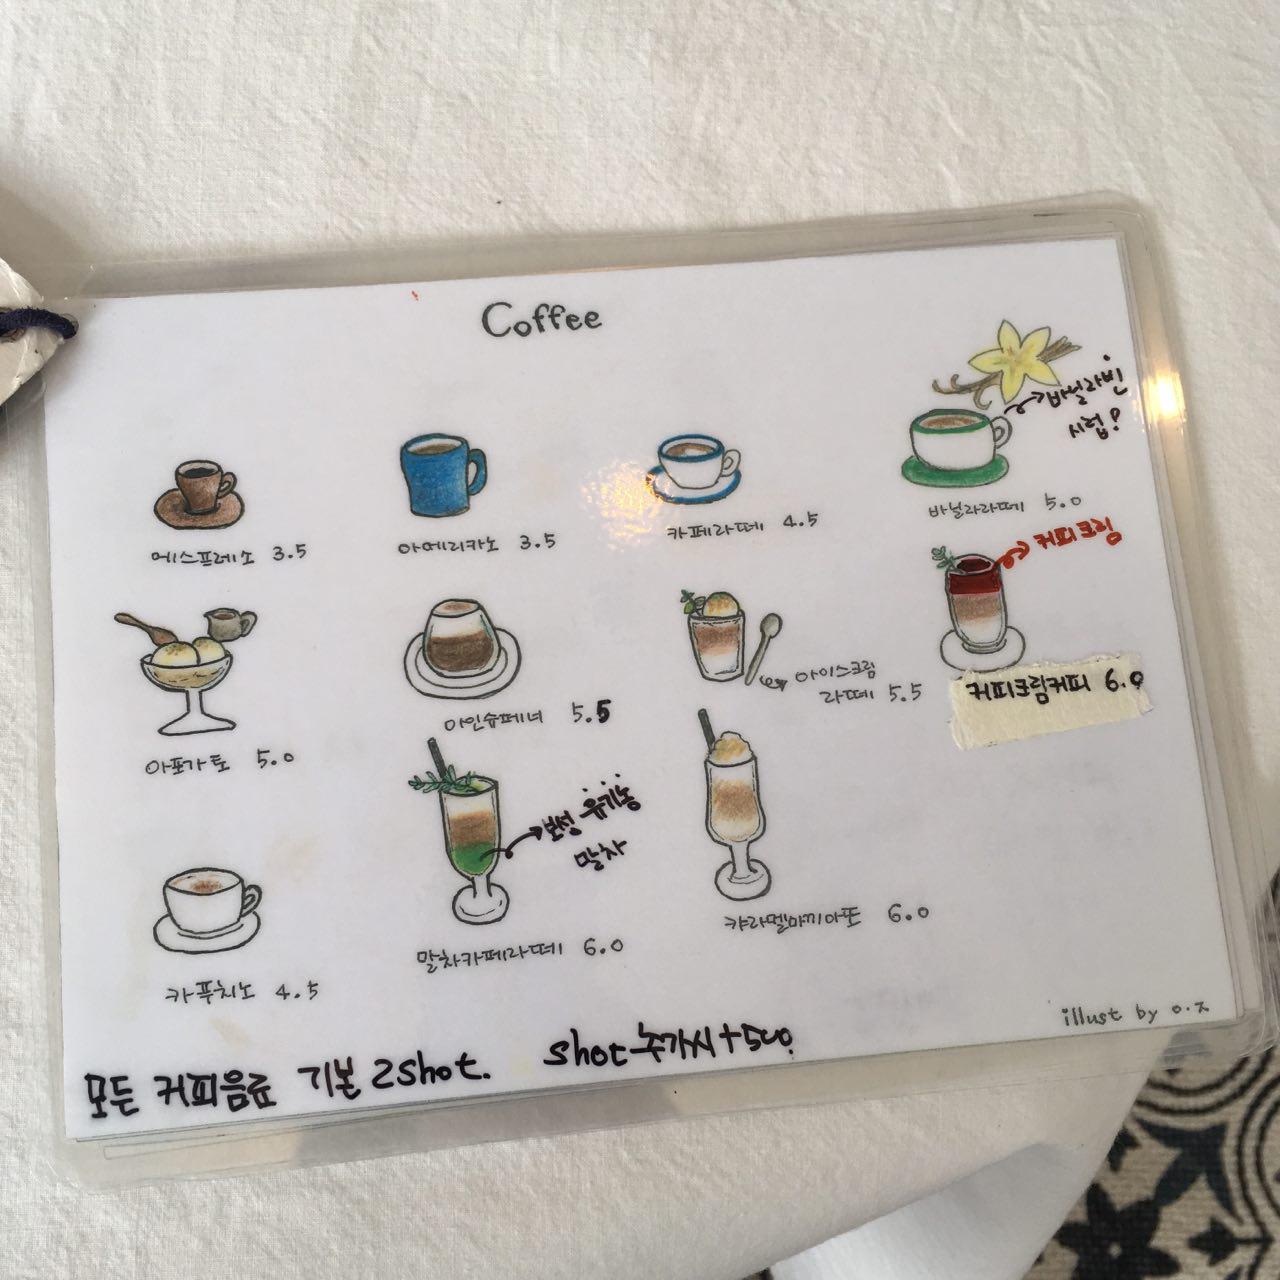 Coffee
바닐라빈
시럽!
에스프레소 3.5
아메리카노 3.5
카페라떼 4.5
바닐라라떼 5.0
커피크림
아포가토 5.0
아인슈페너 5.5
아이스크림
라떼 5.5
커피크림커피 6.0
보성 유기농
말차
카푸치노 4.5
말차카페라떼 6.0
캬라멜마끼아또 6.0
illust by o.ㅈ
모든 커피음료 기본 2shot.
shot추가시+500